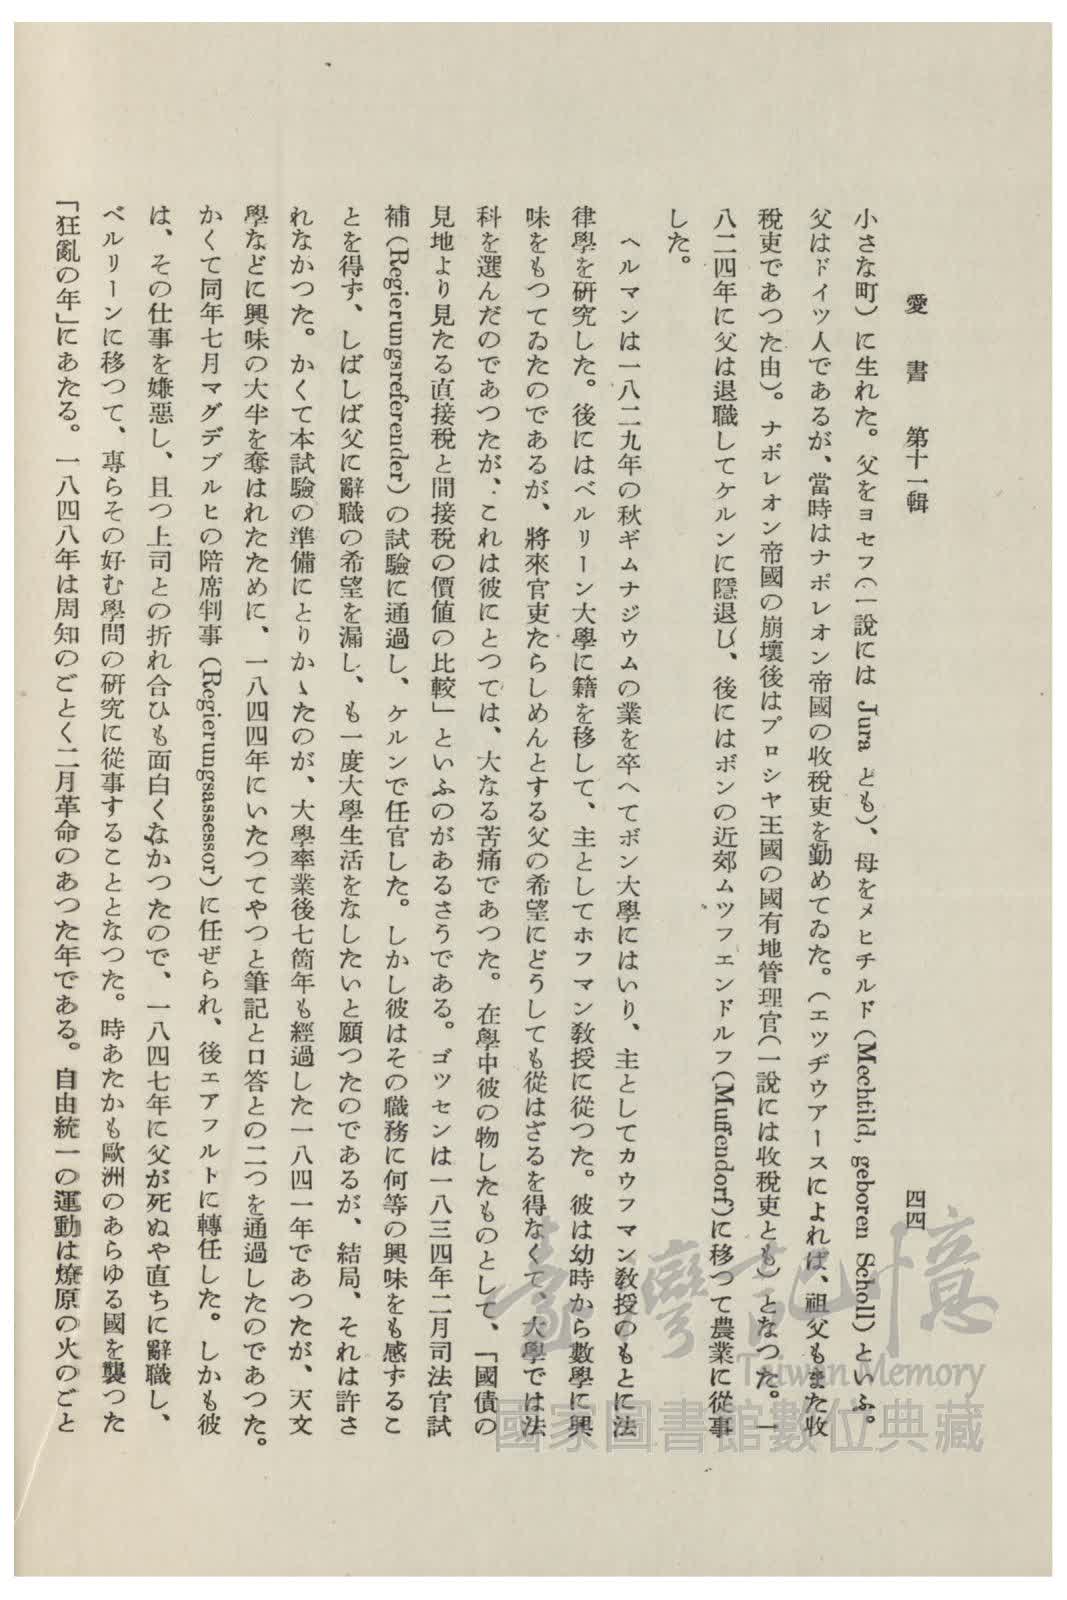 愛書 第十一輯
四四
小さな町）に生れた。父をヨセフ（一說には Jura とも）、母をメヒチルド（Mechtild, geboren Scholl）といふ。
父はドイツ人であるが、當時はナポレオン帝國の收稅吏を勤めてゐた。（エツヂウアースによれば、祖父もまた收
稅吏であつた由）。ナポレオン帝國の崩壞後はプロシヤ王國の國有地管理官（一說には收稅吏とも）となつた。一
八二四年に父は退職してケルンに隱退し、後にはボンの近郊ムツフエンドルフ（Muffendorf）に移つて農業に從事
した。
ヘルマンは一八二九年の秋ギムナジウムの業を卒へてボン大學にはいり、主としてカウフマン敎授のもとに法
律學を硏究した。後にはベルリーン大學に籍を移して、主としてホフマン敎授に從つた。彼は幼時から數學に興
味をもつてゐたのであるが、將來官吏たらしめんとする父の希望にどうしても從はざるを得なくて、大學では法
科を選んだのであつたが、これは彼にとつては、大なる苦痛であつた。在學中彼の物したものとして、「國債の
見地より見たる直接稅と間接稅の價値の比較」といふのがあるさうである。ゴツセンは一八三四年二月司法官試
補（Regierungsreferender）の試驗に通過し、ケルンで任官した。しかし彼はその職務に何等の興味をも感ずるこ
とを得ず、しばしば父に辭職の希望を漏し、も一度大學生活をなしたいと願つたのであるが、結局、それは許さ
れなかつた。かくて本試驗の準備にとりかゝたのが、大學率業後七箇年も經過した一八四一年であつたが、天文
學などに興味の大半を奪はれたために、一八四四年にいたつてやつと筆記と口答との二つを通過したのであつた。
かくて同年七月マグデブルヒの陪席判事（Regierungsassessor）に任ぜられ、後エアフルトに轉任した。しかも彼
は、その仕事を嫌惡し、且つ上司との折れ合ひも面白くなかつたので、一八四七年に父が死ぬや直ちに辭職し、
ベルリーンに移つて、專らその好む學問の硏究に從事することとなつた。時あたかも歐洲のあらゆる國を襲つた
「狂亂の年」にあたる。一八四八年は周知のごとく二月革命のあつた年である。自由統一の運動は燎原の火のごと
臺灣記憶
Taiwan Memory
國家圖書館數位典藏